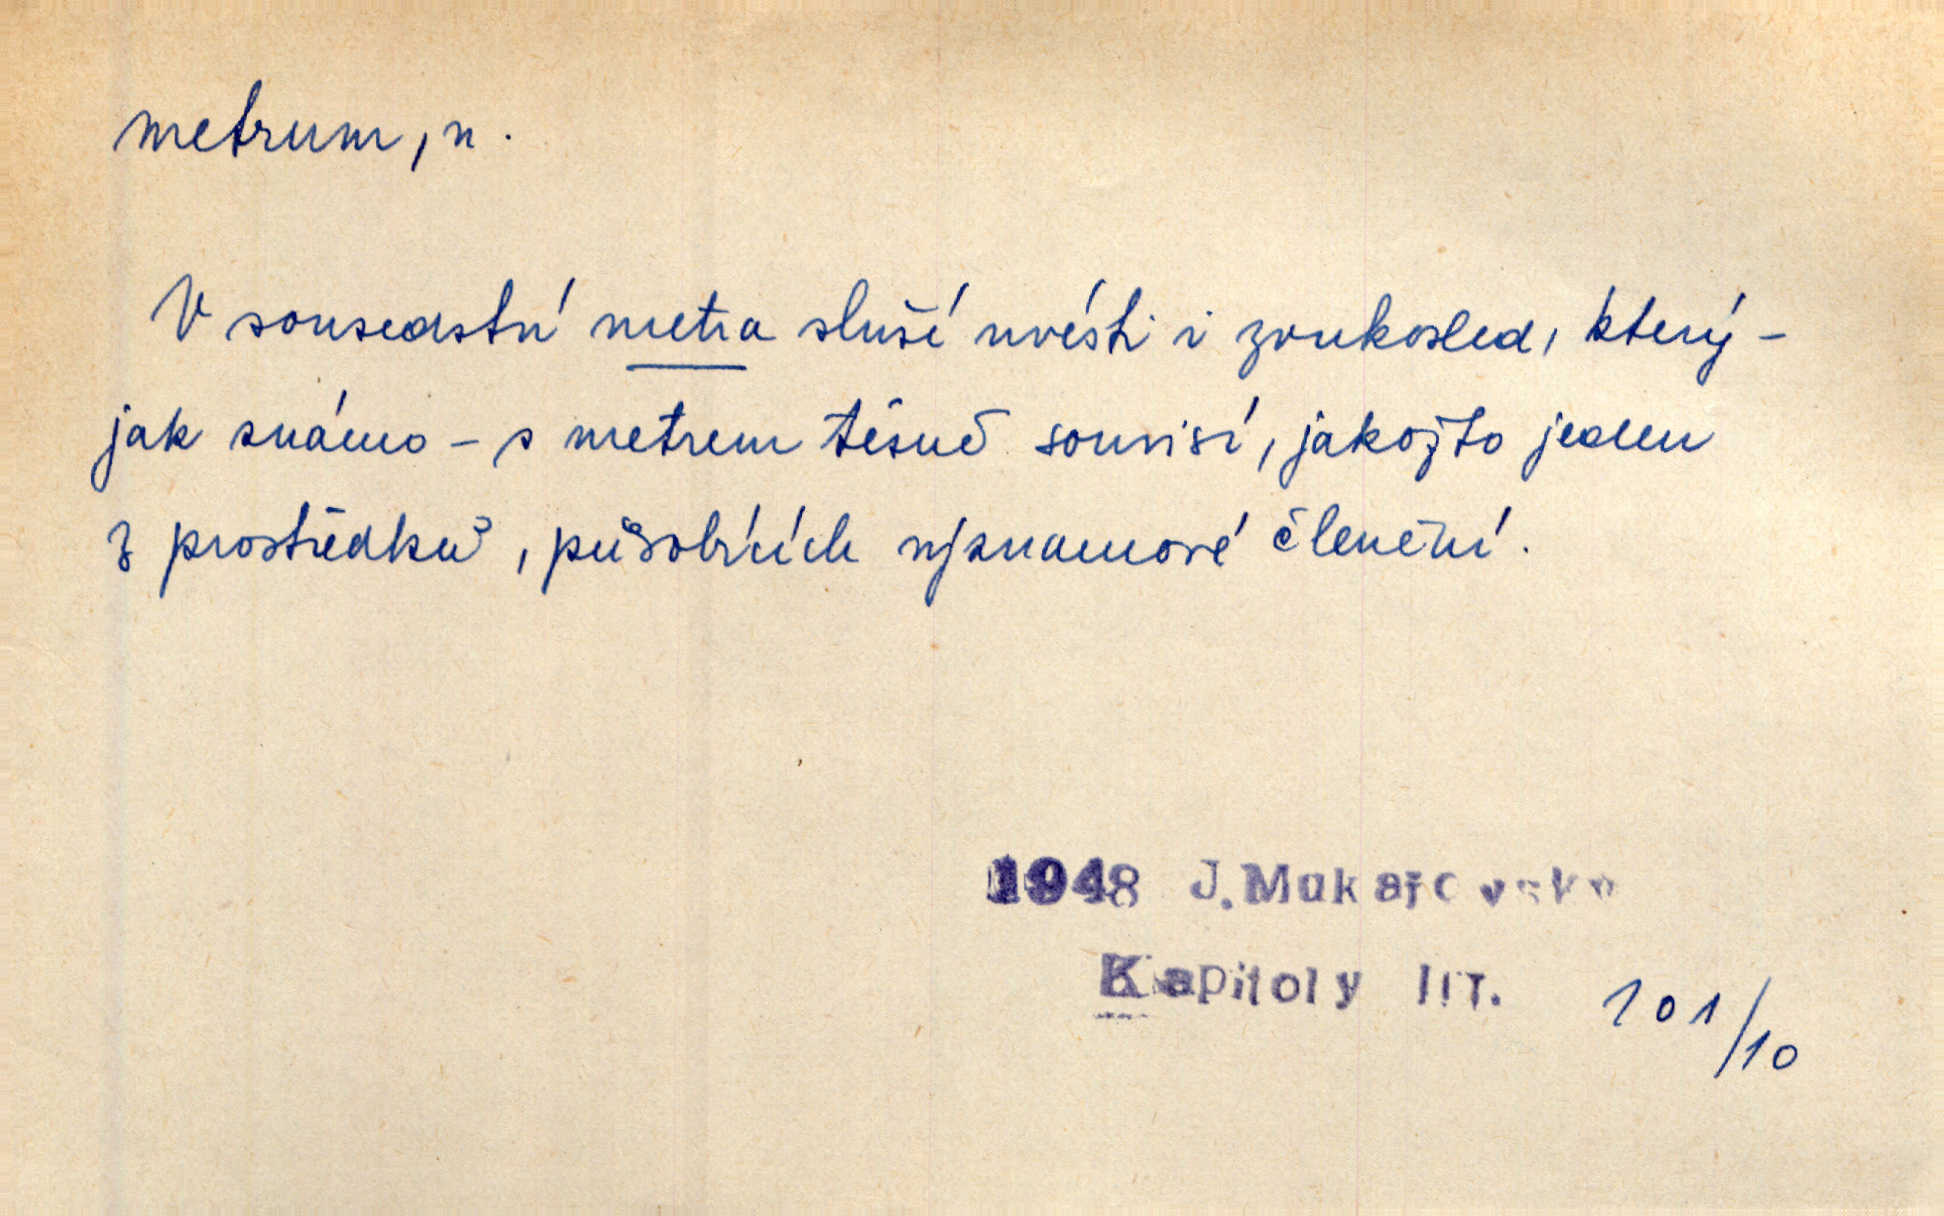 metrum, n.
V sousedství metra sluší uvésti i zvukosled, který –
jak známo – s metrem těsně souvisí, jakožto jeden
z prostředků, působících významové členění.
1948 J. Mukařovský
Kapitoly III.
201/10